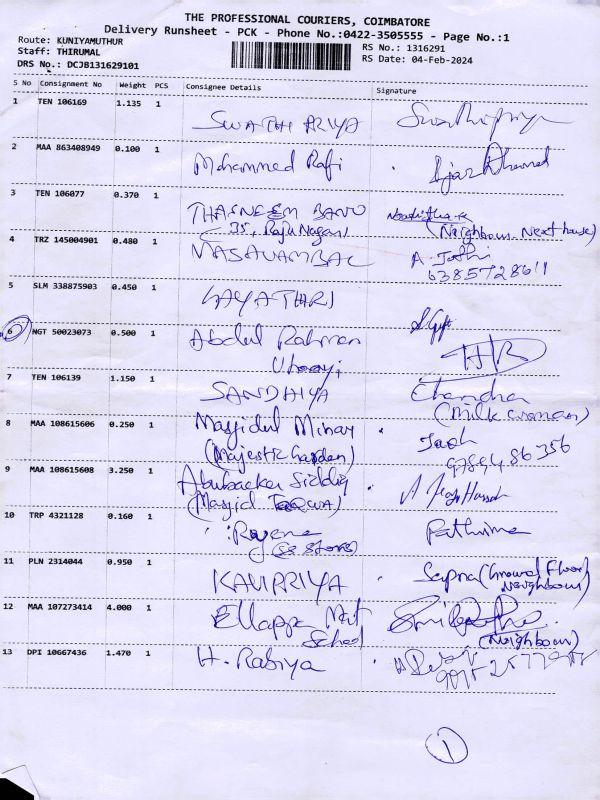 THE PROFESSIONAL COURIERS, COIMBATORE
Delivery Runsheet - PCK - Phone No.:0422-3505555 - Page No.:1
Route: KUNIYAMUTHUR
RS No.: 1316291
Staff: THIRUMAL
RS Date: 04-Feb-2024
DRS No.: DCJB131629101
S No Consignment No Weight PCS Consignee Details Signature
1 TEN 106169 1.135 1
SWATHI PRIYA Swathipriya
2 MAA 863408949 0.100 1
Mohammed Rafi
3 TEN 106077 0.370 1
THASNEEM BANU
(35, Raju Nagar) (Neighbour Next house)
4 TRZ 145004901 0.480 1
MASANAMBAL A. Jothi
6385728611
5 SLM 338875903 0.450 1
GAYATHRI
6 NGT 50023073 0.500 1
Abdul Rahman
7 TEN 106139 1.150 1
SANDHIYA Chandra
(Milk woman)
8 MAA 108615606 0.250 1
Masjidul Minar
(Majestic Garden) 9789486356
9 MAA 108615608 3.250 1
Abubacker Siddiq
(Masjid Taqwa)
10 TRP 4321128 0.160 1
Fathima
11 PLN 2314044 0.950 1
KAVIPRIYA Sapna (Ground Floor
Neighbour)
12 MAA 107273414 4.000 1
Ellappa Mat
School (Neighbour)
13 DPI 10667436 1.470 1
H. Rabiya
1